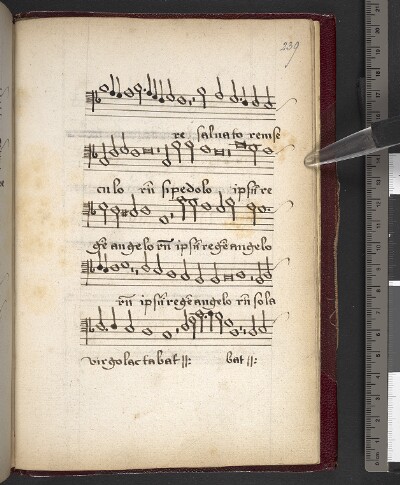 239
re saluato remse
culo rm̄ si pedolo ipsū re
gē angelo rm̄ ipsū regē angelo
rm̄ ipsū regē angelo rm̄ sola
virgo lactabat ||: bat ||: